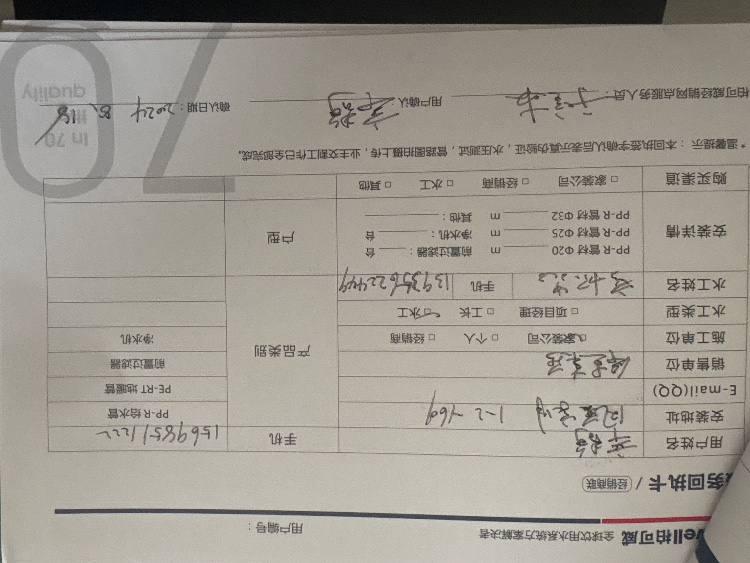 vell柏可威 全球饮用水系统方案解决者
用户编号：
务回执卡 / 经销商联
用户姓名 手机 15698571222
安装地址 1-2-1769 PP-R 给水管
E-mail(QQ) PE-RT 地暖管
销售单位 前置过滤器
施工单位 □家装公司 □个人 □经销商 产品类别 净水机
水工类型 □项目经理 □工长 □水工
水工姓名 手机 13935622449
安装详情 PP-R 管材 Φ20 m 前置过滤器： 台 户型
PP-R 管材 Φ25 m 净水机： 台
PP-R 管材 Φ32 m 其他：
购买渠道 □家装公司 □经销商 □水工 □其他
*温馨提示：本回执签字确认后表示真伪验证，水压测试，管路图拍摄上传，业主交割工作已全部完成。
柏可威经销网点服务人员： 用户确认： 确认日期：2024 8.18
70
In 70
quality